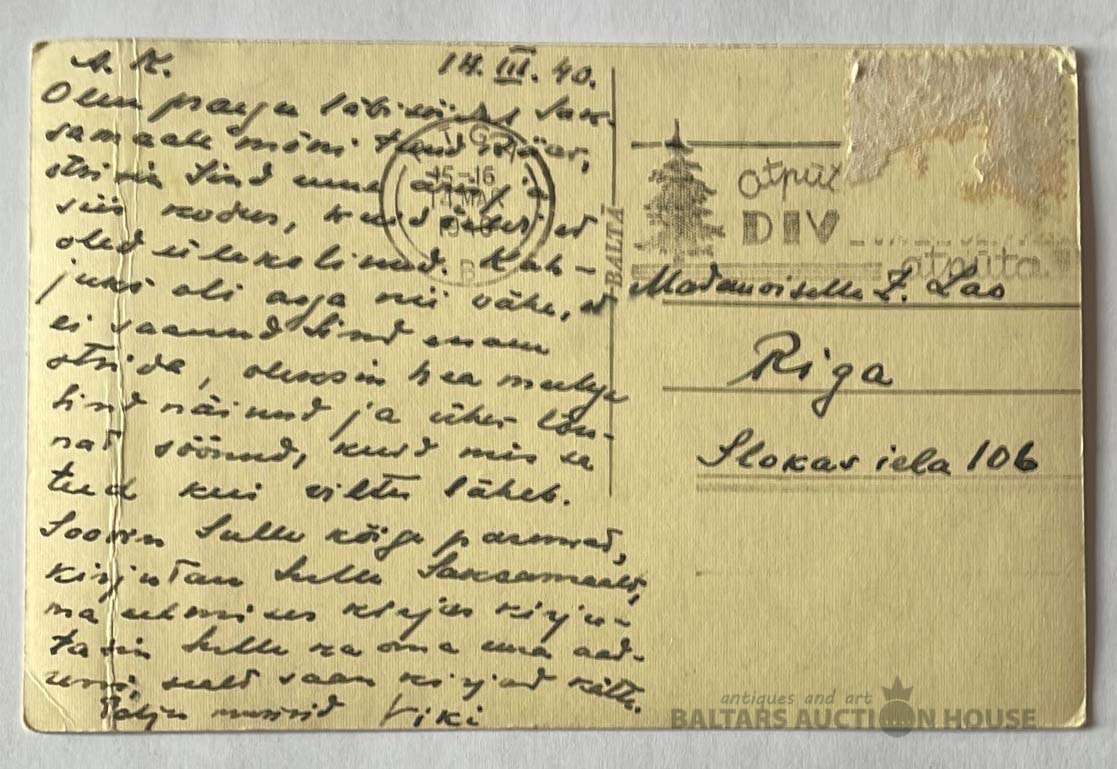 A. K.
14. III. 40.
Olen praegu läbisõidul Sak-
samaale mõni tund Riias,
otsisin Sind enne
siis kodus, kuid
oled üles kolinud. Kah-
juks oli aega nii vähe, et
ei saanud Sind enam
otsida, oleksin hea meelega
Sind näinud ja ühes lõu-
nat söönud, kuid mis sa
teed kui viltu läheb.
Soovin Sulle kõige paremat,
kirjutan Sulle Saksamaalt,
ma eelmises kirjas kirju-
tasin Sulle ka oma uue aad-
ressi, sealt saan kirjad kätte.
Palju musisid Viki
RIGA
15-16
14 MAR
1940
B
BALTA
atpūt
DIV
atpūta.
Mademoiselle Z. Lao
Riga
Slokas iela 106
antiques and art
BALTARS AUCTION HOUSE